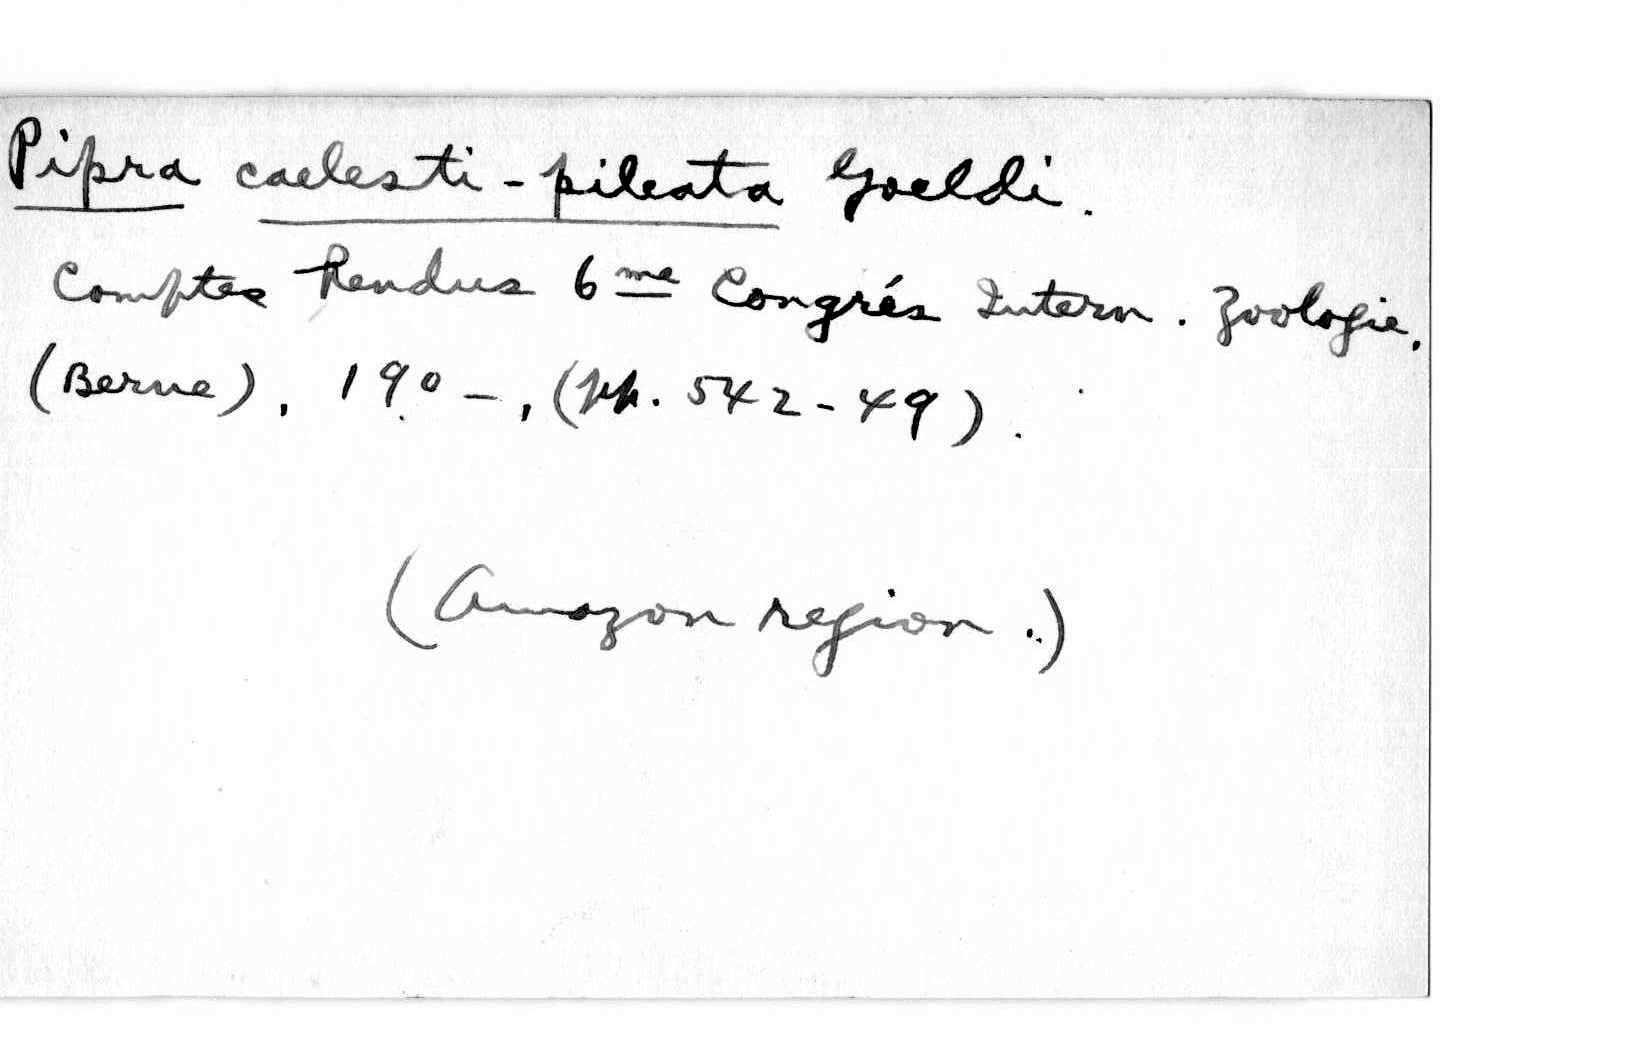 Pipra caelesti-pileata Goeldi.
Comptes Rendus 6me Congrés Intern. Zoologie,
(Berne), 190-, (pp. 542-49).
(Amazon region.)